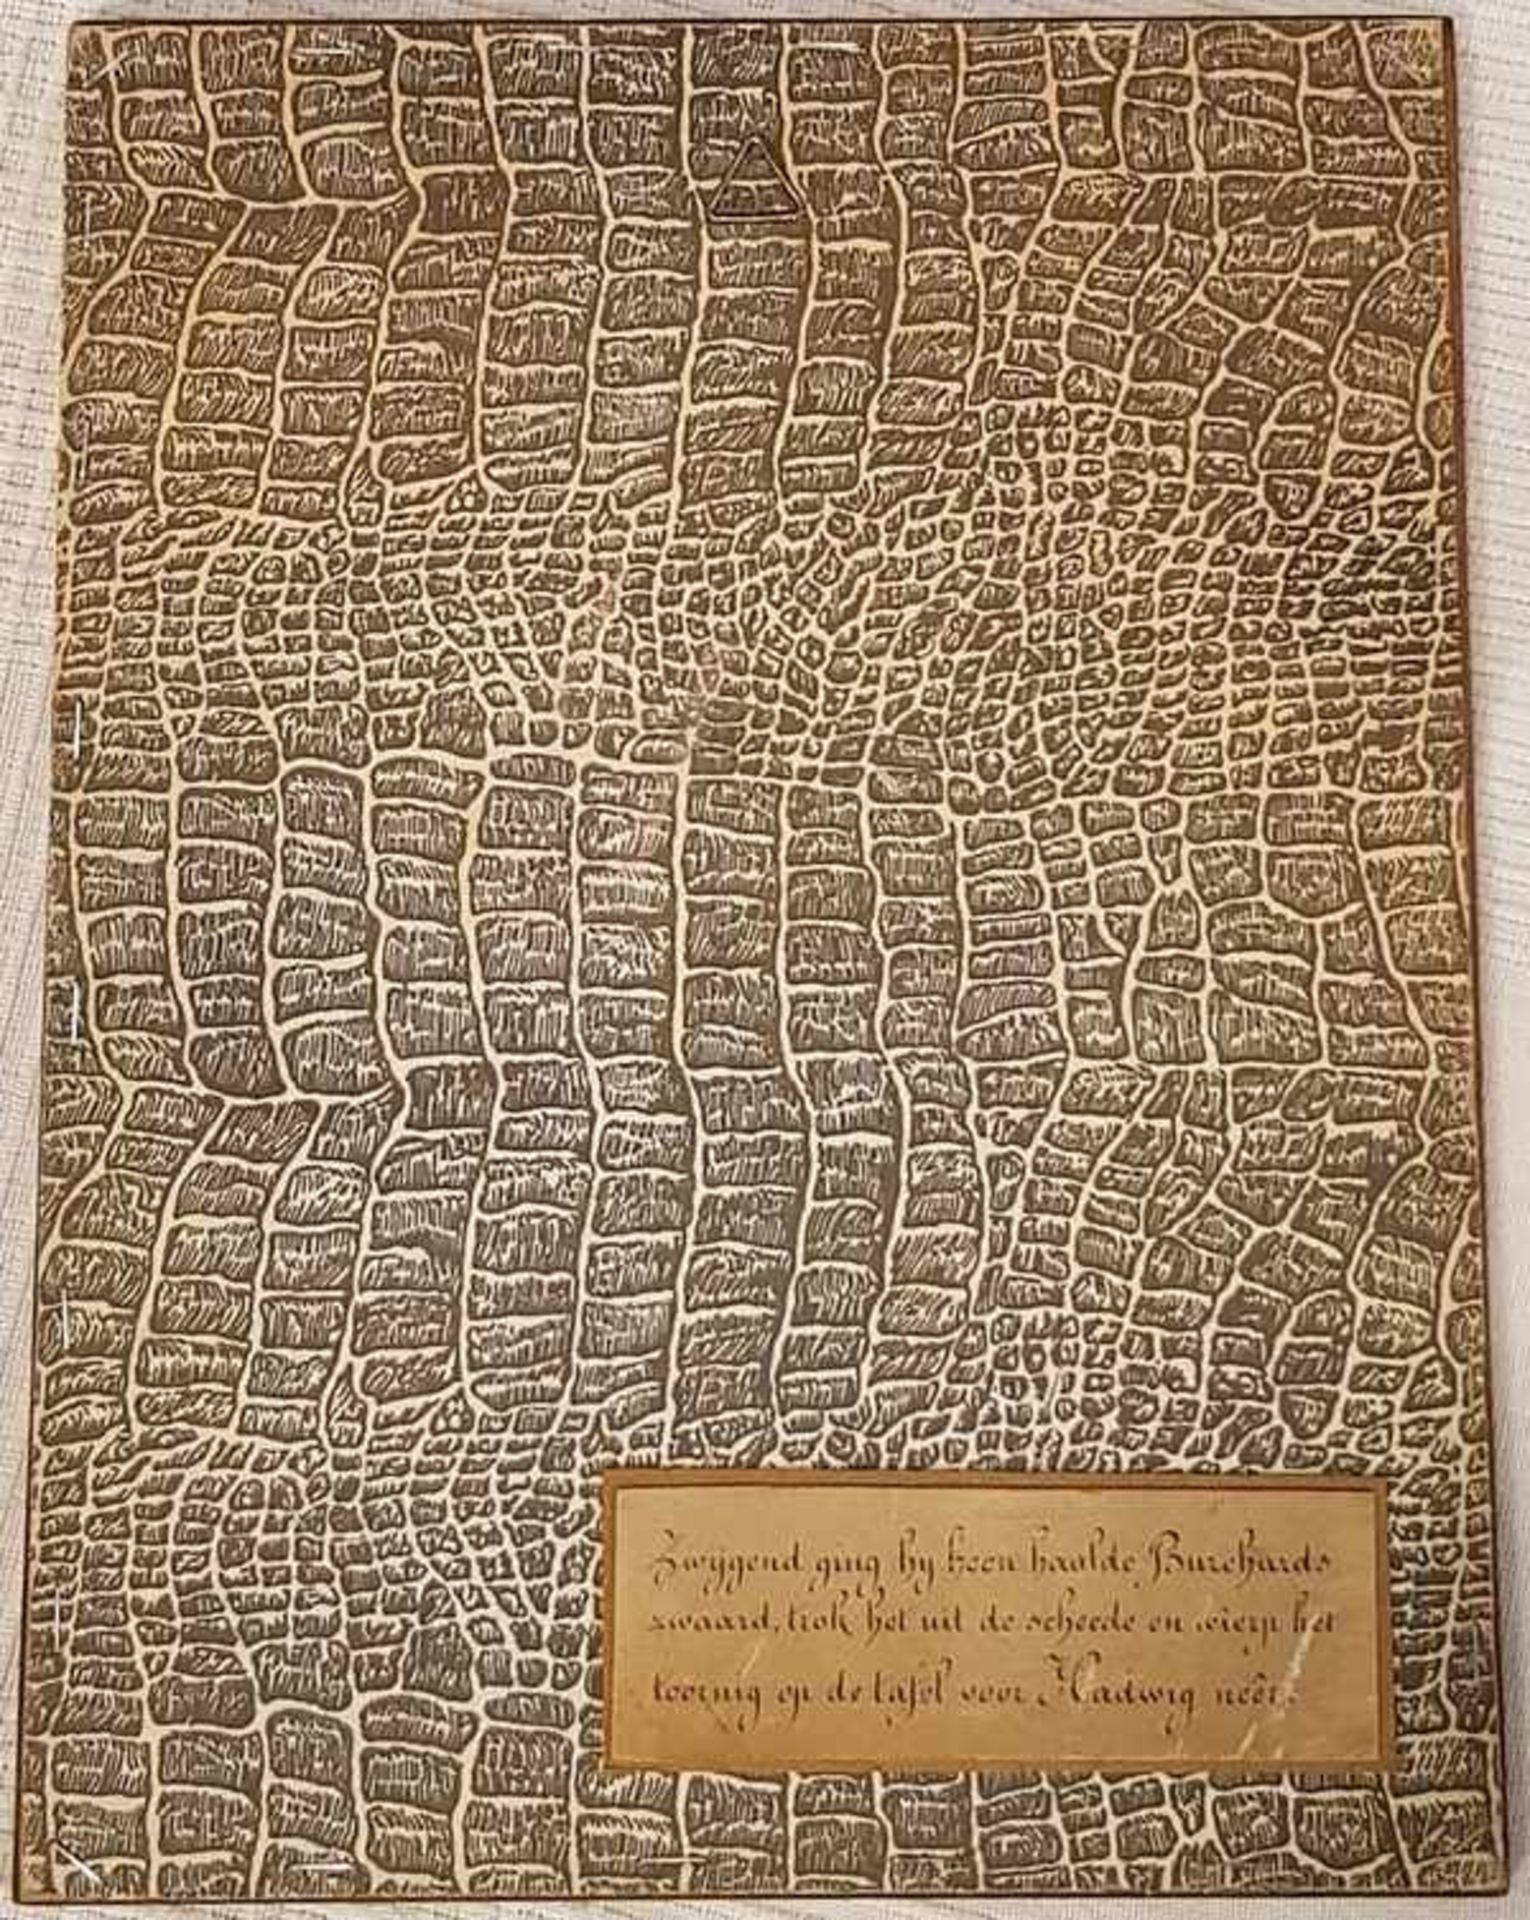 Zwijgend ging hij heen haalde Burchards
zwaard, trok het uit de scheede en wierp het
toornig op de tafel voor Hadwig neêr.